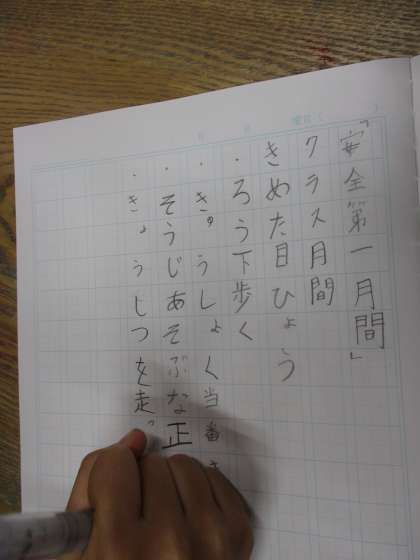 「安全第一月間」
クラス月間
きめた目ひょう
・ろう下歩く
・きゅうしょく当番き
・そうじあそぶな正
・きょうしつを走